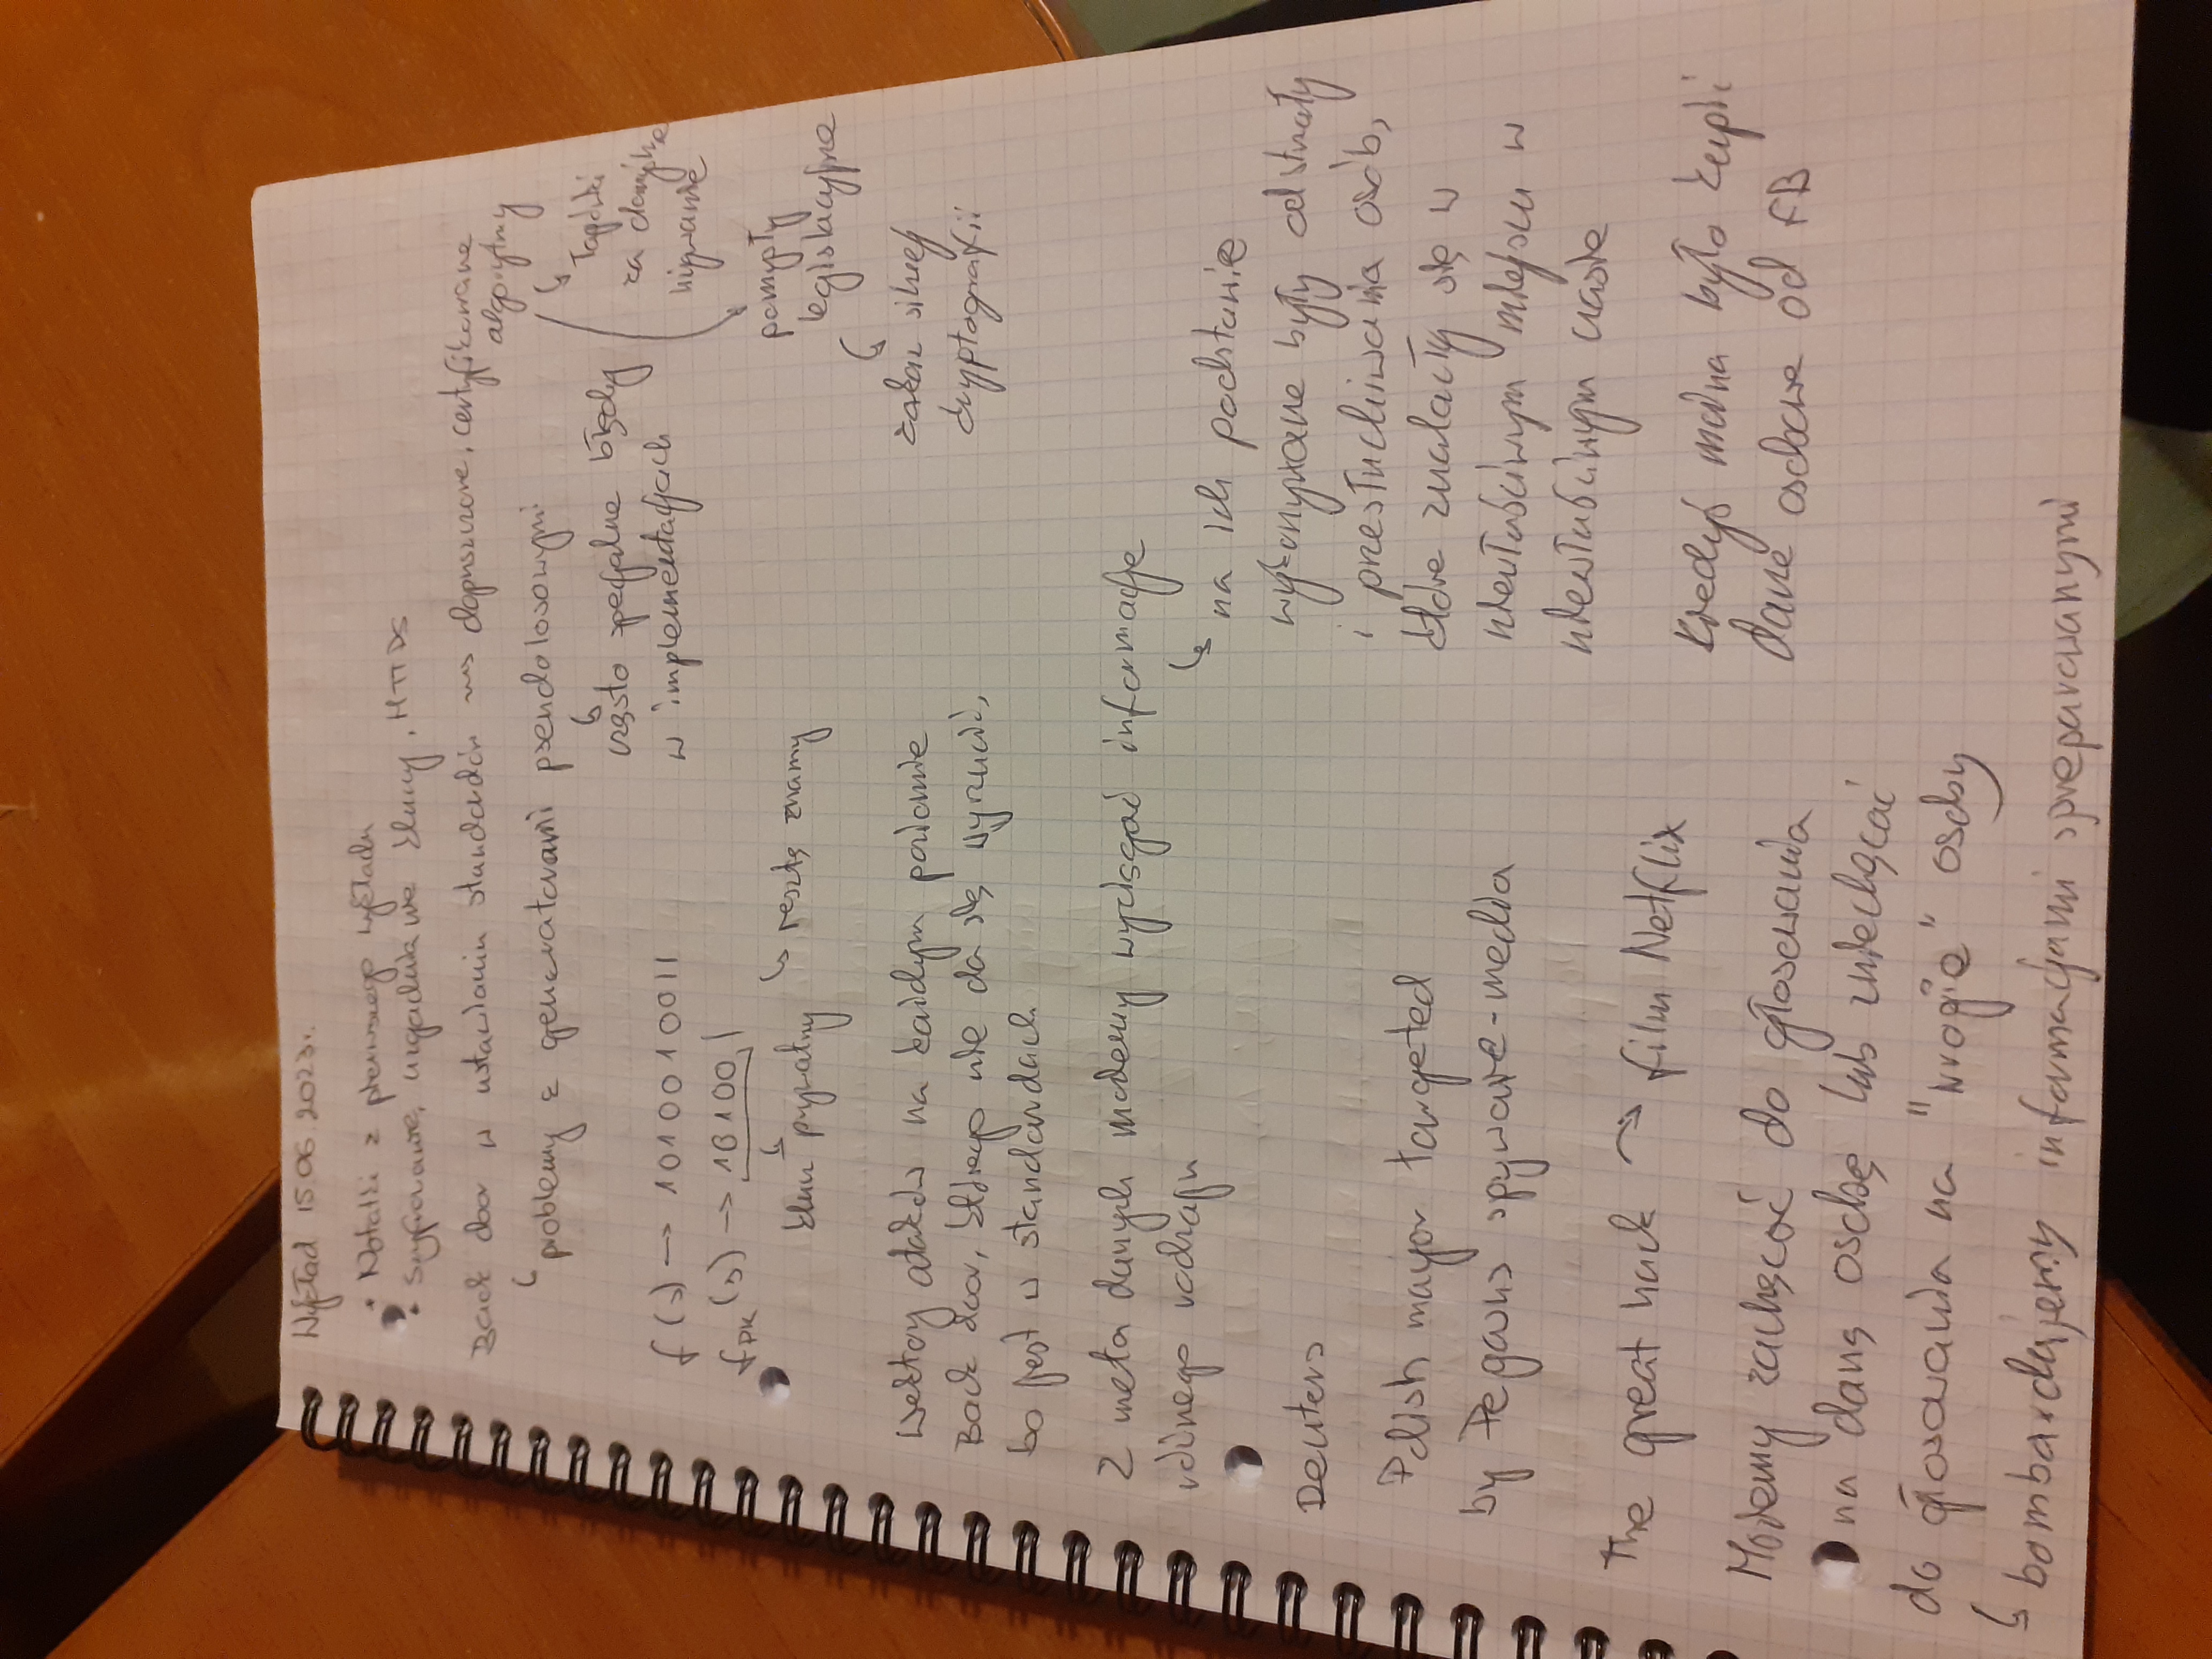 Wykład 15.06.2023r.
• Notatki z pierwszego wykładu
• Szyfrowanie, uzgadnianie kluczy, HTTPS
Back door w ustawianiu standardów dopuszczone, certyfikowane
algorytmy
↳ problemy z generatorami pseudolosowymi
↳ często specjalne błędy
w implementacjach
↳ łapówki
za domyślne
używanie
f(s) → 1010010011
f PK (s) → 10100,1
↳ klucz prywatny
↳ resztę znamy
pomysły
legislacyjne
↳ zakaz silnej
kryptografii
Wektory ataków na każdym poziomie
Back door, którego nie da się wyrzucić,
bo jest w standardach
Z meta danych możemy wyciągać informacje
różnego rodzaju
↳ na ich podstawie
wykonywane były odstrzały
i przesłuchiwania osób,
które znalazły się w
niewłaściwym miejscu w
niewłaściwym czasie
Reuters
Polish mayor targeted
by Pegasus spyware-media
The great hack → film Netflix
Kiedyś można było kupić
dane osobowe od FB
Możemy zachęcać do głosowania
na daną osobę lub zniechęcać
do głosowania na "wrogie" osoby
↳ bombardujemy informacjami spreparowanymi